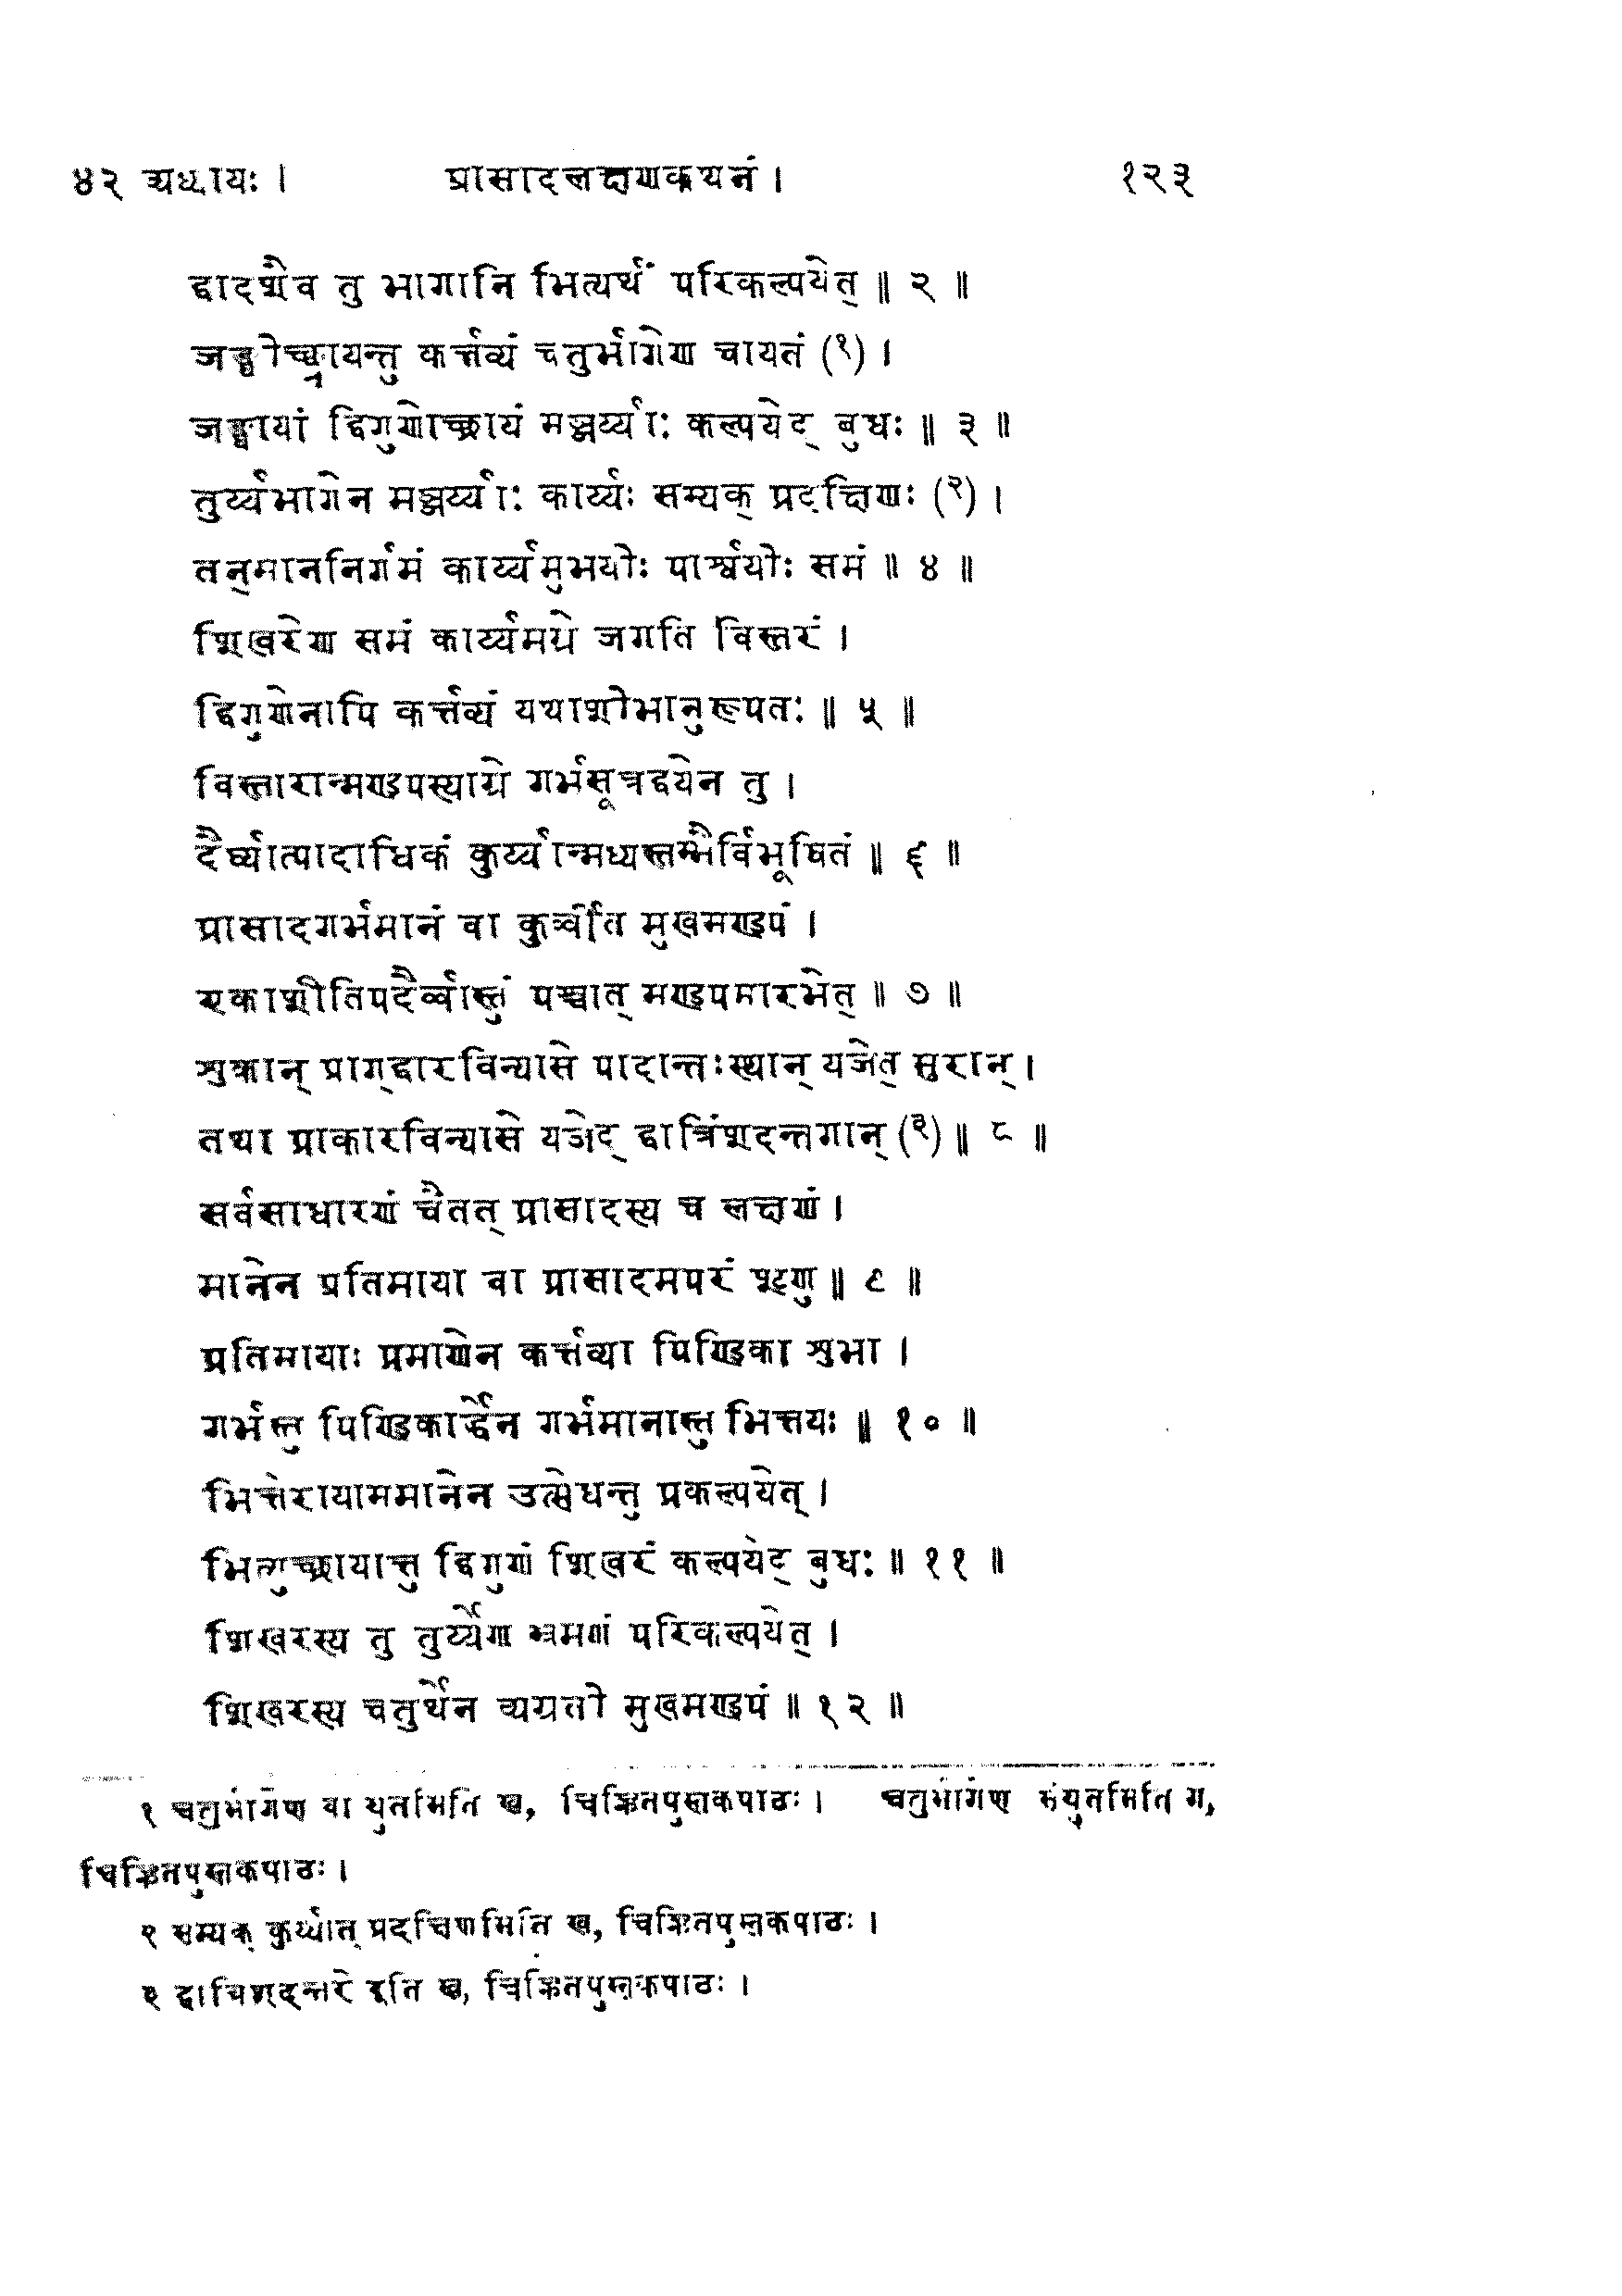 ४२ अध्यायः । प्रासादलक्षणकथनं । १२३
द्वादशैव तु भागानि भित्त्यर्थं परिकल्पयेत् ॥ २ ॥
जङ्घोच्छ्रायन्तु कर्त्तव्यं चतुर्भागेण चायतं (१) ।
जङ्घायां द्विगुणोच्छ्रायं मञ्जर्य्याः कल्पयेद् बुधः ॥ ३ ॥
तुर्य्यभागेन मञ्जर्य्याः कार्य्यः सम्यक् प्रदक्षिणः (२) ।
तन्माननिर्गमं कार्य्यमुभयोः पार्श्वयोः समं ॥ ४ ॥
शिखरेण समं कार्य्यमग्रे जगति विस्तरं ।
द्विगुणेनापि कर्त्तव्यं यथाशोभानुरूपतः ॥ ५ ॥
विस्तारान्मण्डपस्याग्रे गर्भसूत्रद्वयेन तु ।
दैर्घ्यात्पादाधिकं कुर्य्यान्मध्यस्तम्भैर्विभूषितं ॥ ६ ॥
प्रासादगर्भमानं वा कुर्व्वीत मुखमण्डपं ।
एकाशीतिपदैर्व्वास्तुं पश्चात् मण्डपमारभेत् ॥ ७ ॥
शुकान् प्राग्द्वारविन्यासे पादान्तःस्थान् यजेत् सुरान् ।
तथा प्राकारविन्यासे यजेद् द्वात्रिंशदन्तगान् (३) ॥ ८ ॥
सर्वसाधारणं चैतत् प्रासादस्य च लक्षणं ।
मानेन प्रतिमाया वा प्रासादमपरं शृणु ॥ ९ ॥
प्रतिमायाः प्रमाणेन कर्त्तव्या पिण्डिका शुभा ।
गर्भस्तु पिण्डिकार्द्धेन गर्भमानास्तु भित्तयः ॥ १० ॥
भित्तेरायाममानेन उत्सेधन्तु प्रकल्पयेत् ।
भित्त्युच्छ्रायात्तु द्विगुणं शिखरं कल्पयेद् बुधः ॥ ११ ॥
शिखरस्य तु तुर्य्येण भ्रमणं परिकल्पयेत् ।
शिखरस्य चतुर्थेन अग्रतो मुखमण्डपं ॥ १२ ॥
१ चतुर्भागेण वा युतमिति ख, चिह्नितपुस्तकपाठः । चतुर्भागेण संयुतमिति ग,
चिह्नितपुस्तकपाठः ।
२ सम्यक् कुर्य्यात् प्रदक्षिणमिति ख, चिह्नितपुस्तकपाठः ।
३ द्वात्रिंशदन्तरे इति ख, चिह्नितपुस्तकपाठः ।